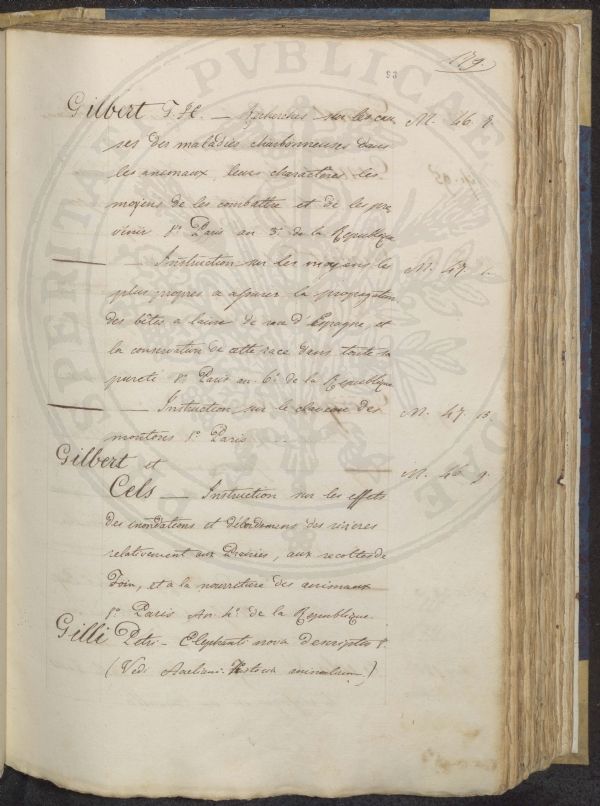 179.
93
Gilbert F. H. — Recherches sur les cau M. 46 9.
ses des maladies charbonneuses dans
les animaux, leurs charactères les
moyens de les combattre et de les pre
venir 8° Paris an 3e de la Republique
— Instruction sur les moyens le M. 47 1.
plus propres a assurer la propagation
des bêtes a laine de race d'Espagne, et
la conservation de cette race dans toute sa
pureté 8° Paris an. 6e de la Republique
— Instruction sur le claveau des M. 47 13
moutons 8° Paris
Gilbert et — M. 46 9.
Cels — Instruction sur les effets
des inondations et débordemens des rivieres
relativement aux Prairies, aux recoltes de
Foin, et a la nourreture des animaux
8° Paris An 4e de la Republique
Gilli Petri - Elephanti nova descriptio 8°
(Vedi Aeliani Historia animalium)
PVBLICAE